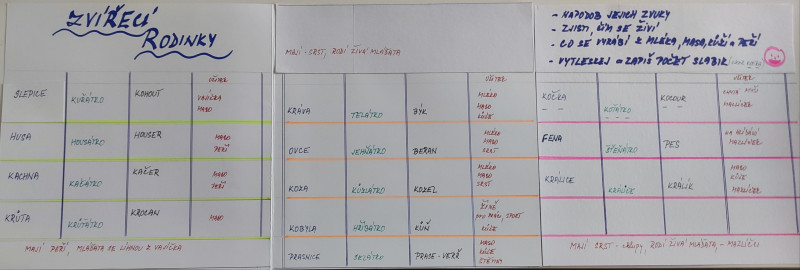 ZVÍŘECÍ
RODINKY
UŽITEK
SLEPICE KUŘÁTKO KOHOUT VAJÍČKA
MASO
HUSA HOUSÁTKO HOUSER MASO
PEŘÍ
KACHNA KAČÁTKO KAČER MASO
PEŘÍ
KRŮTA KRŮŤÁTKO KROCAN MASO
MAJÍ PEŘÍ, MLÁĎATA SE LÍHNOU Z VAJÍČKA
MAJÍ - SRST, RODÍ ŽIVÁ MLÁĎATA
UŽITEK
KRÁVA TELÁTKO BÝK MLÉKO
MASO
KŮŽE
OVCE JEHŇÁTKO BERAN MLÉKO
MASO
SRST
KOZA KŮZLÁTKO KOZEL MLÉKO
MASO
SRST
KOBYLA HŘÍBÁTKO KŮŇ ŽÍNĚ
SPORT
KŮŽE
PRASNICE SELÁTKO PRASE - VEPŘ MASO
KŮŽE
ŠTĚTINY
- NAPODOB JEJICH ZVUKY
- ZJISTI, ČÍM SE ŽIVÍ
- CO SE VYRÁBÍ Z MLÉKA, MASA, KŮŽÍ A PEŘÍ
- VYTLESKEJ A ZAPIŠ POČET SLABIK
UŽITEK
KOČKA KOŤÁTKO KOCOUR MYŠI
MAZLÍČEK
FENA ŠTĚŇÁTKO PES NA HLÍDÁNÍ
MAZLÍČEK
KRÁLICE KRÁLÍČEK KRÁLÍK MASO
KŮŽE
MAZLÍČEK
MAJÍ SRST - RODÍ ŽIVÁ MLÁĎATA - MAZLÍČCI